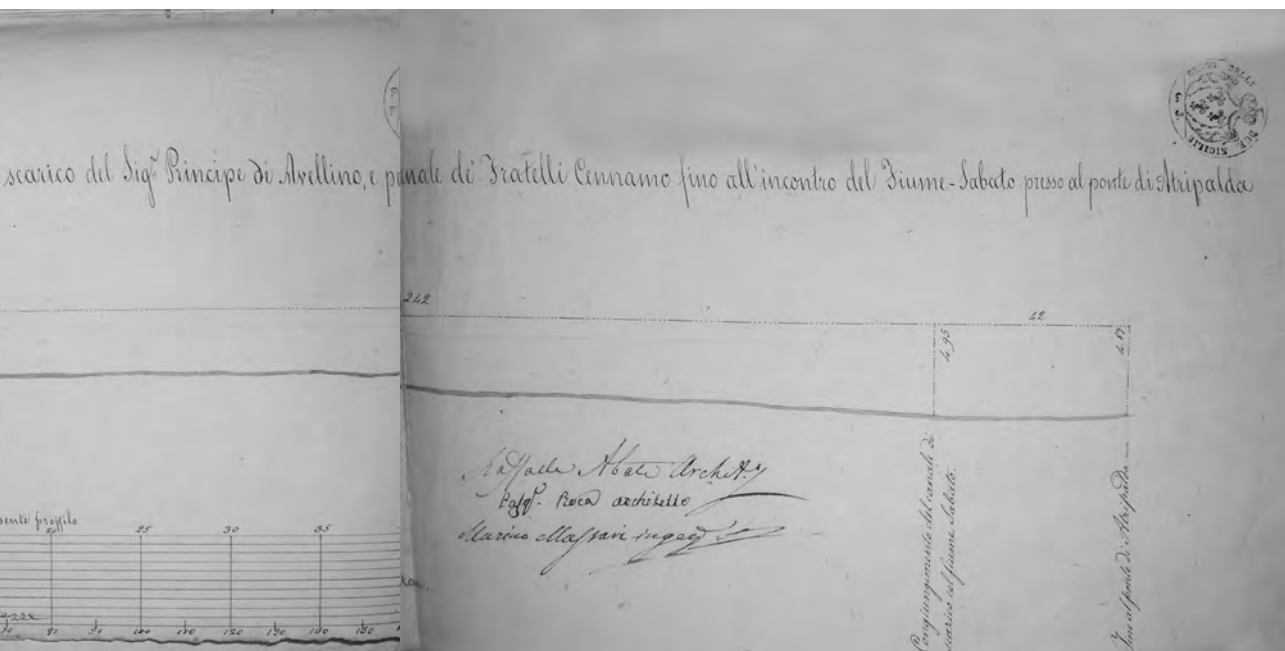 scarico del Sigr. Principe di Avellino, e p nale de' Fratelli Cennamo fino all'incontro del Fiume-Sabato presso al ponte di Atripalda
DELLE DUE SICILIE
242
42
4.95
4.17
Raffaele Abate Archit.
Pasq. Roca architetto
Marino Massari ingeg
Congiungimento del canale di
scarico col fiume Sabato.
Fine al ponte di Atripalda
sente proffilo
20 25 30 35
70 80 90 100 110 120 130 140 150